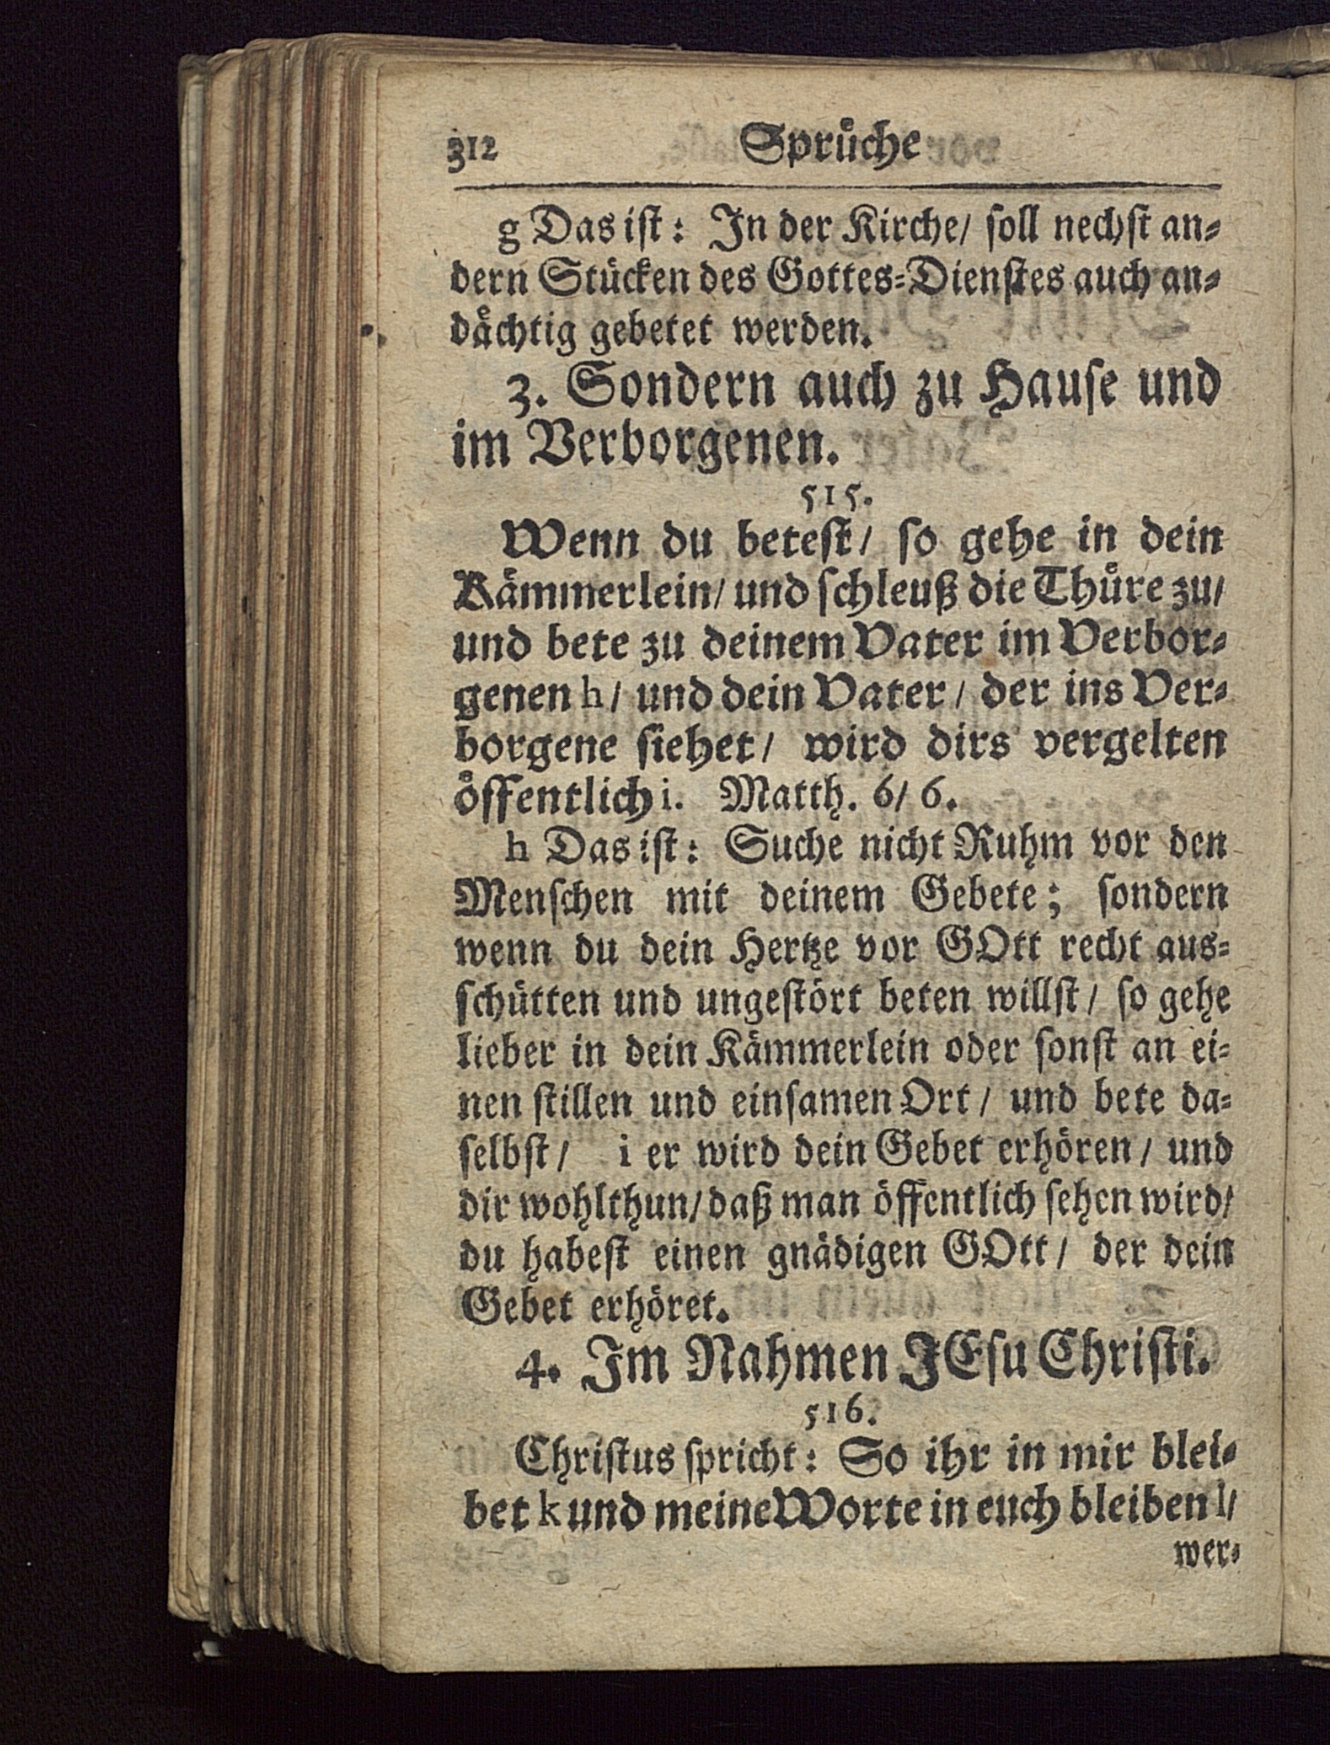 312 Sprüche
g Das ist: In der Kirche/ soll nechst an-
dern Stücken des Gottes-Dienstes auch an-
dächtig gebetet werden.
3. Sondern auch zu Hause und
im Verborgenen.
515.
Wenn du betest/ so gehe in dein
Kämmerlein/ und schleuß die Thüre zu/
und bete zu deinem Vater im Verbor-
genen h/ und dein Vater/ der ins Ver-
borgene siehet/ wird dirs vergelten
öffentlich i. Matth. 6/ 6.
h Das ist: Suche nicht Ruhm vor den
Menschen mit deinem Gebete; sondern
wenn du dein Hertze vor GOtt recht aus-
schütten und ungestört beten willst/ so gehe
lieber in dein Kämmerlein oder sonst an ei-
nen stillen und einsamen Ort/ und bete da-
selbst/ i er wird dein Gebet erhören/ und
dir wohlthun/ daß man öffentlich sehen wird/
du habest einen gnädigen GOtt/ der dein
Gebet erhöret.
4. Im Nahmen JEsu Christi.
516.
Christus spricht: So ihr in mir blei-
bet k und meine Worte in euch bleiben l/
wer-